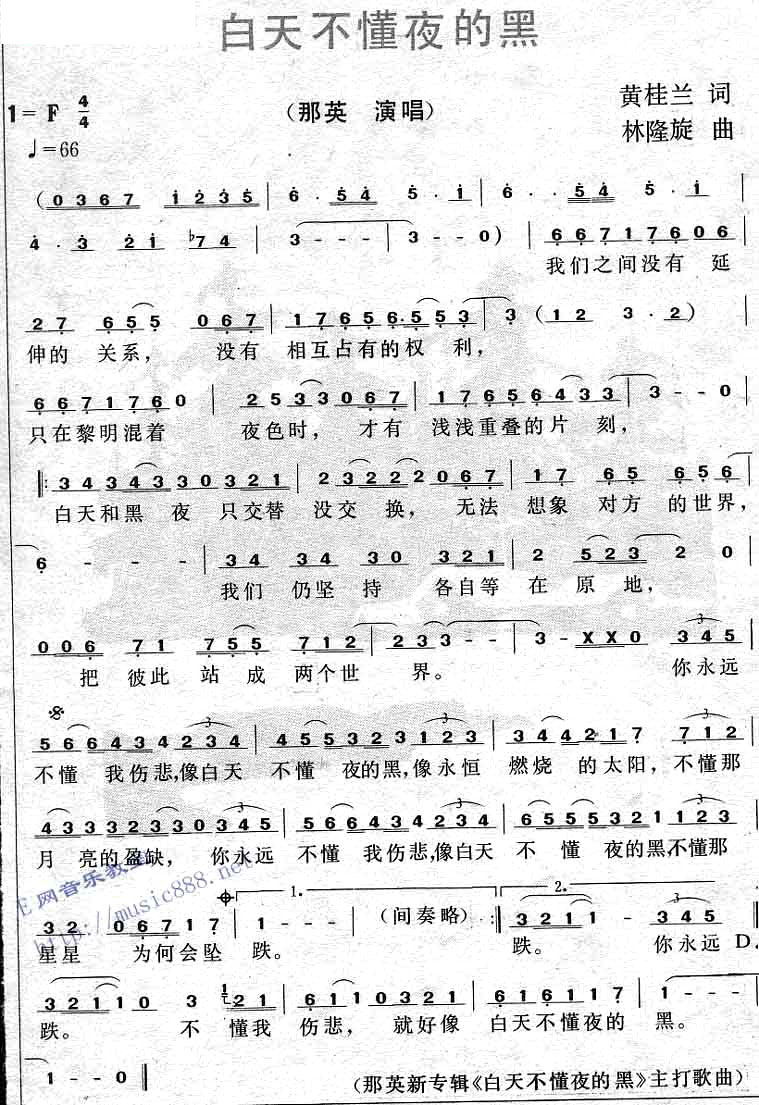 白天不懂夜的黑
1=F 4/4
(那英 演唱)
黄桂兰 词
♩=66
林隆旋 曲
(0367 1235 | 6·54 5·1 | 6··54 5·1
4·3 21 ♭74 | 3--- | 3--0) | 66717606
我们之间没有 延
27 655 067 | 17656·553 | 3 (12 3·2)
伸的 关系， 没有 相互占有的权 利，
6671760 | 2533067 | 17656433 | 3--0
只在黎明混着 夜色时， 才有 浅浅重叠的片 刻，
‖: 3434330321 | 23222067 | 17 65 656
白天和黑 夜 只交替 没交 换， 无法 想象 对方 的世界，
6 - - - | 34 34 30 321 | 2 523 2 0
我们 仍坚 持 各自等 在 原 地，
006 71 755 712 | 233 3-- | 3-XX0 345
把 彼此 站 成 两个世 界。 你永远
566434234 | 45532 3123 | 344217 712
不懂 我伤悲,像白天 不懂 夜的黑,像永恒 燃烧 的太阳，不懂那
43332330345 | 566434234 | 6555323123
月 亮的盈缺， 你永远 不懂 我伤悲,像白天 不 懂 夜的黑,不懂那
1.
2.
32 06717 | 1--- (间奏略) :‖ 3211 - 345
星星 为何会坠 跌。 跌。 你永远 D.
321103 21 | 61100321 | 6161171 | 1---
跌。 不 懂我 伤悲， 就好像 白天不懂夜的 黑。
1--0 ‖
(那英新专辑《白天不懂夜的黑》主打歌曲)
网音乐教室
http://music888.net